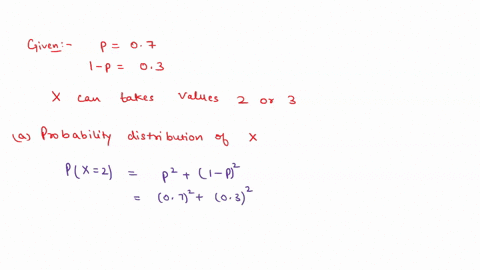 Given:- p = 0.7
1-p = 0.3
X can takes values 2 or 3
(a) Probability distribution of X
P(X=2) = p² + (1-p)²
= (0.7)² + (0.3)²